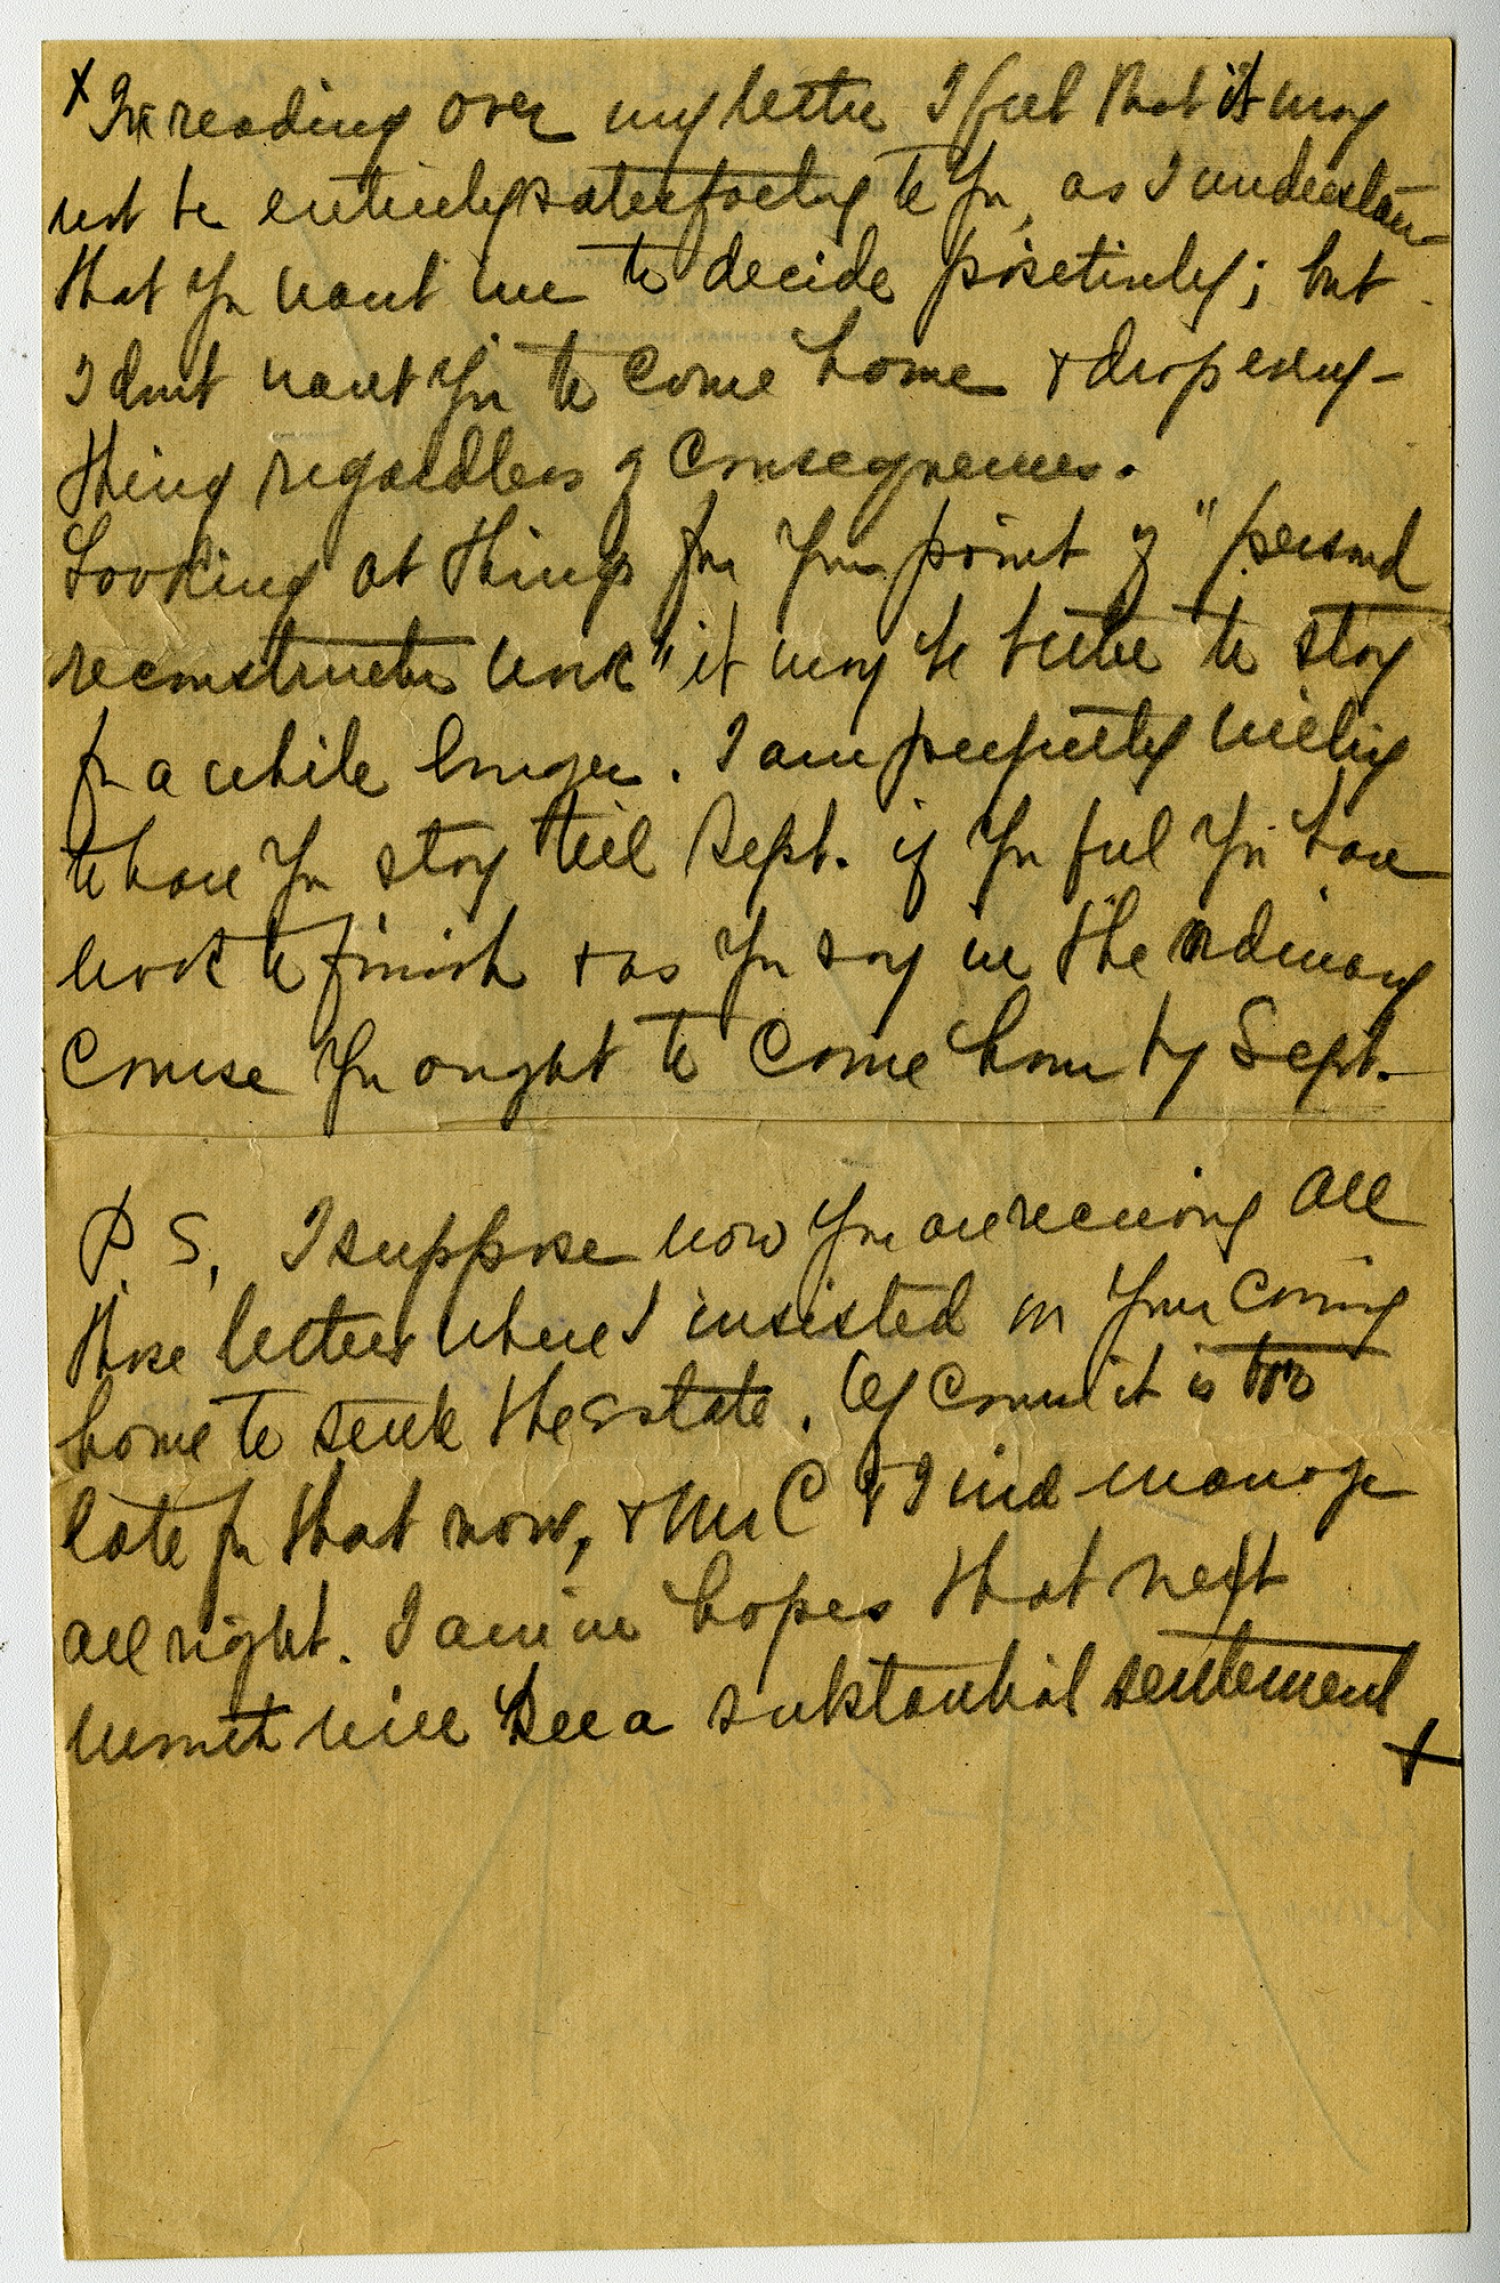 x In reading over my letter I feel that it may
not be entirely satisfactory to you, as I understand
that you want me to decide positively; but
I don't want you to come home & drop every-
thing regardless of consequences.
Looking at things from your point of "personal
reconstruction work" it may be better to stay
for a while longer. I am perfectly willing
to have you stay till Sept. if you feel you have
work to finish & as you say in the ordinary
course you ought to come home by Sept.
P.S. I suppose now you are receiving all
those letters where I insisted on your coming
home to settle the estate. Of course it is too
late for that now, & Mr C & I will manage
all right. I am in hopes that next
month will see a substantial settlement
x